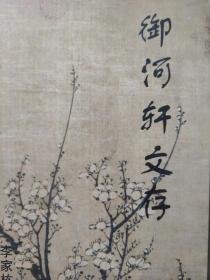 御河轩文存
李家